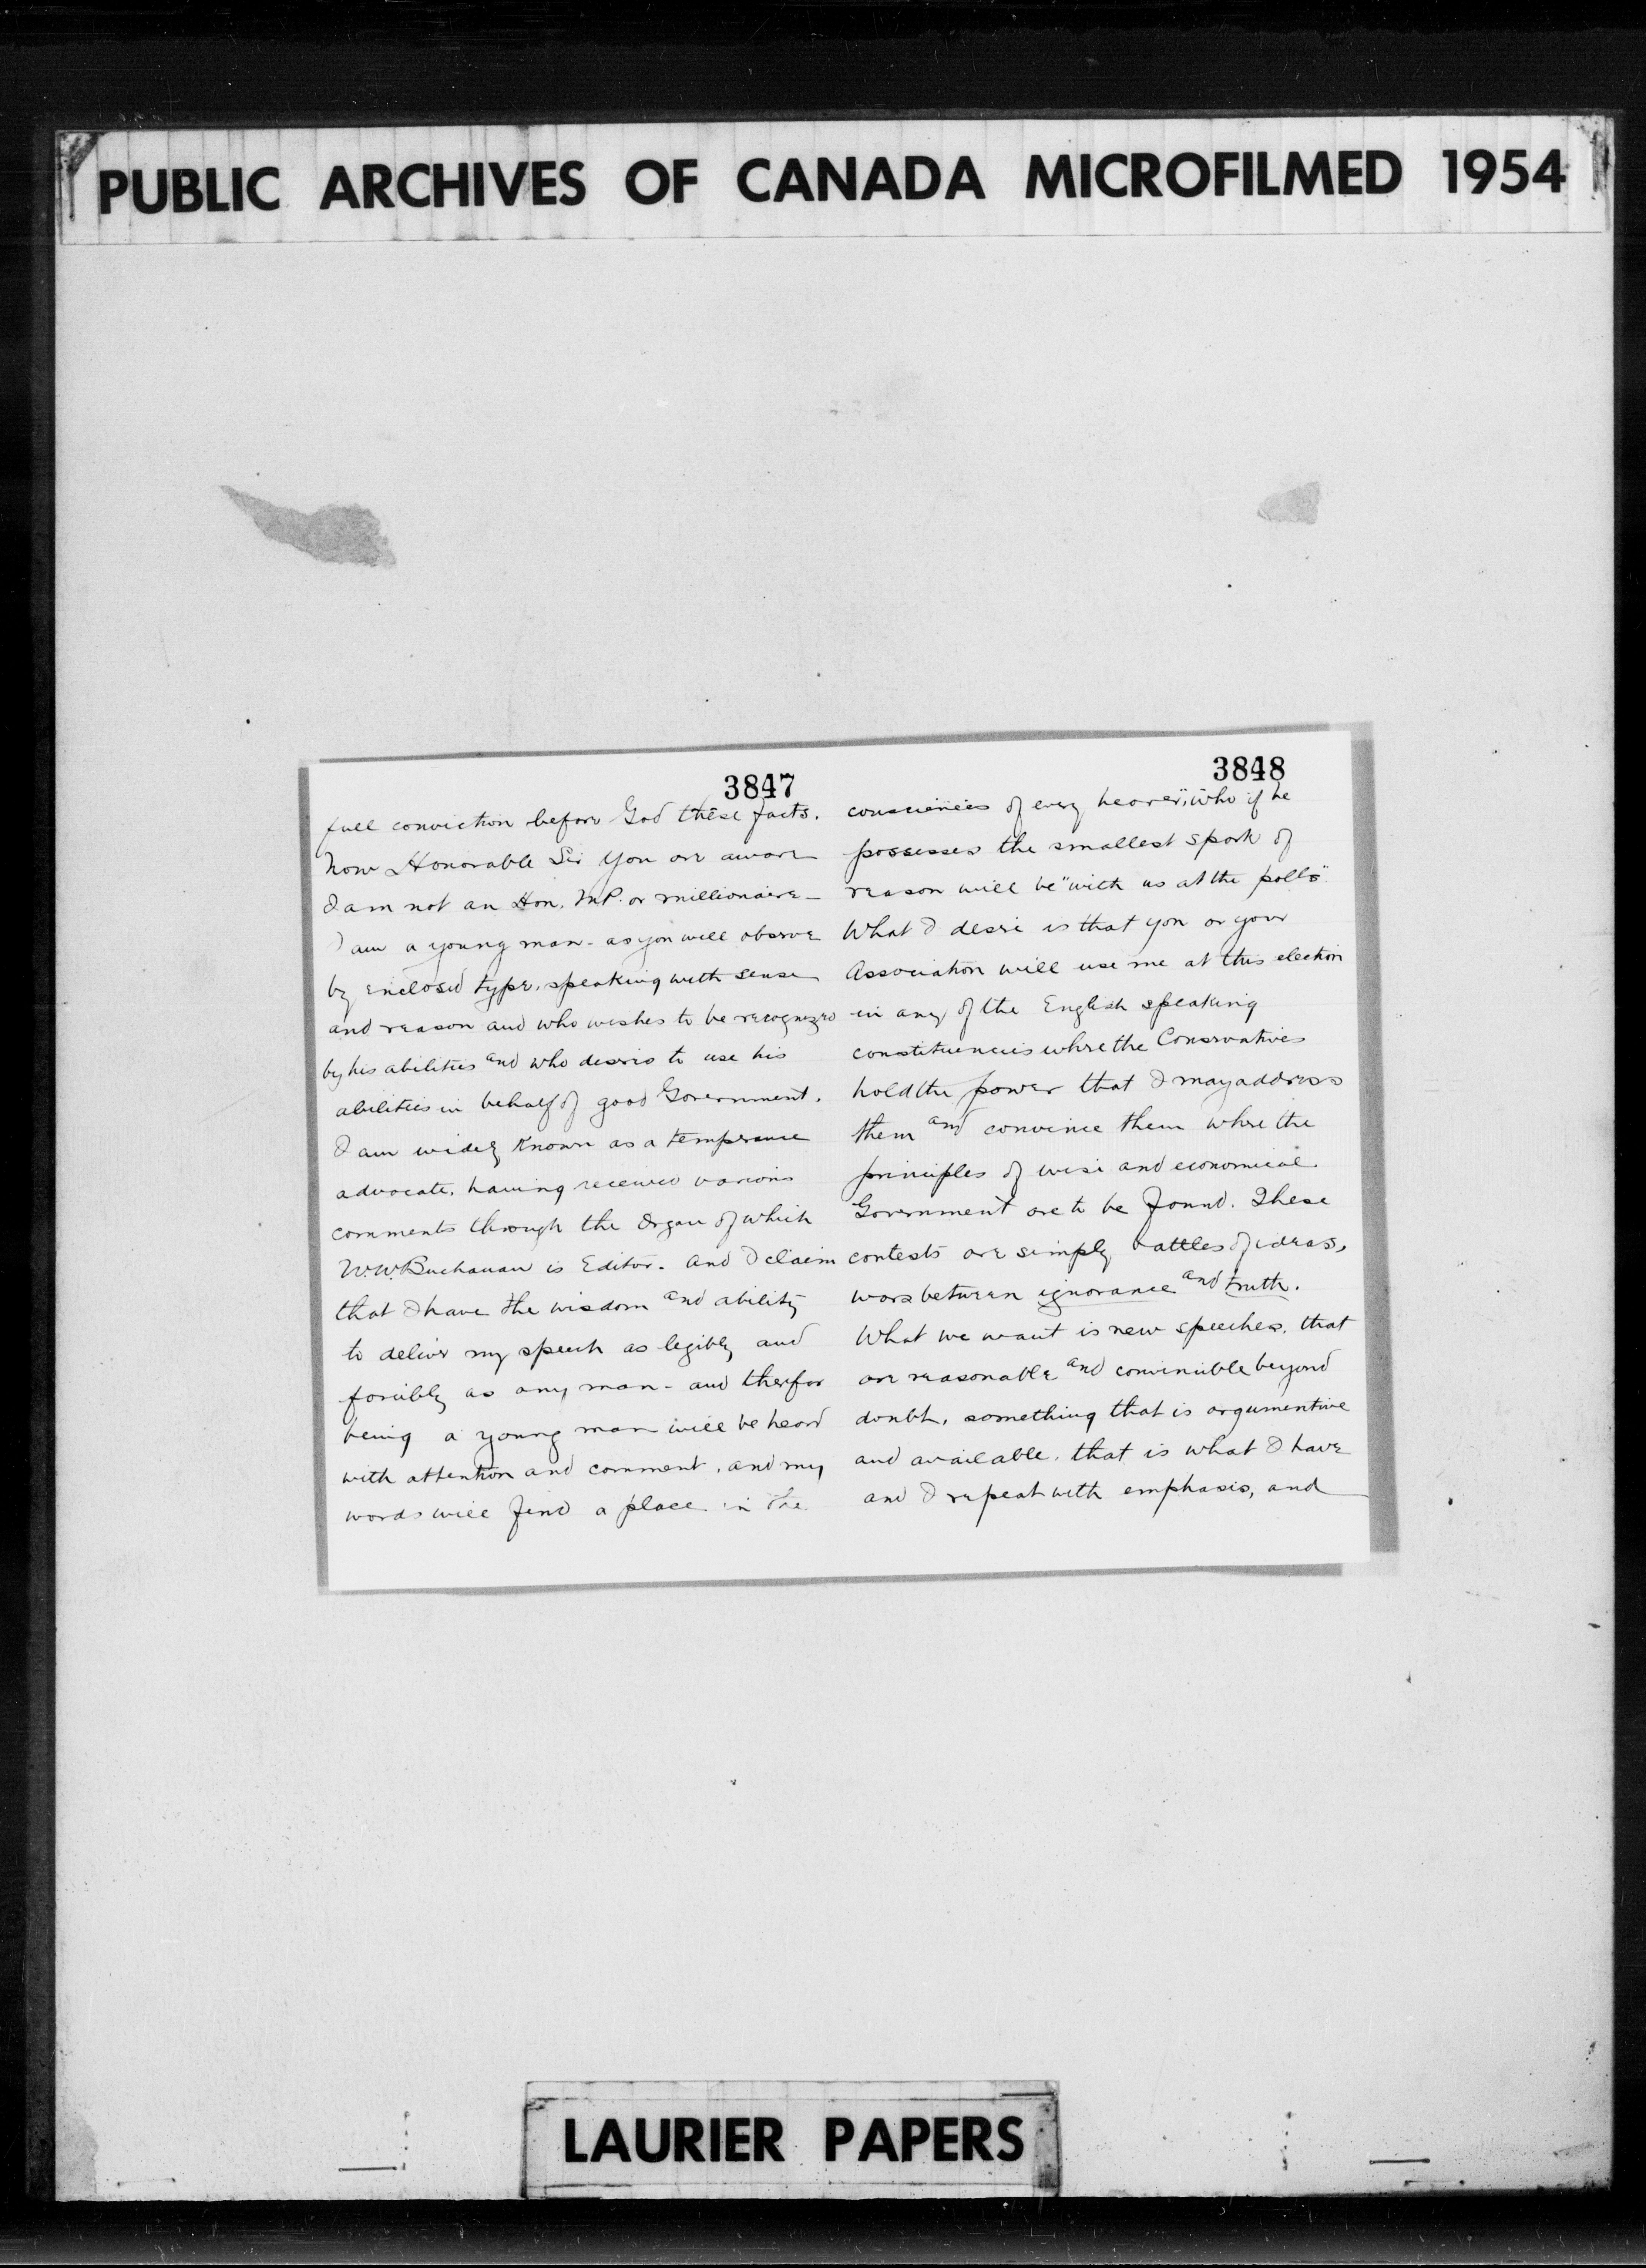 PUBLIC ARCHIVES OF CANADA MICROFILMED 1954
3847
full conviction before God these facts.
Now Honorable Sir you are aware
I am not an Hon. M.P. or millionaire -
I am a young man - as you will observe
by enclosed type, speaking with sense
and reason and who wishes to be recognized
by his abilities and who desires to use his
abilities in behalf of good Government.
I am widely known as a temperance
advocate, having received various
comments through the Organ of which
W.W. Buchanan is Editor. And I claim
that I have the wisdom and ability
to deliver my speech as legibly and
forcibly as any man - and therefor
being a young man will be heard
with attention and comment, and my
words will find a place in the
3848
consciences of every hearer", who if he
possesses the smallest spark of
reason will be "with us at the polls".
What I desire is that you or your
Association will use me at this election
in any of the English speaking
constituencies where the Conservatives
hold the power that I may address
them and convince them where the
principles of wise and economical
Government are to be found. These
contests are simply battles of ideas,
wars between ignorance and truth.
What we want is new speeches, that
are reasonable and convincible beyond
doubt, something that is argumentive
and available, that is what I have
and I repeat with emphasis, and
LAURIER PAPERS